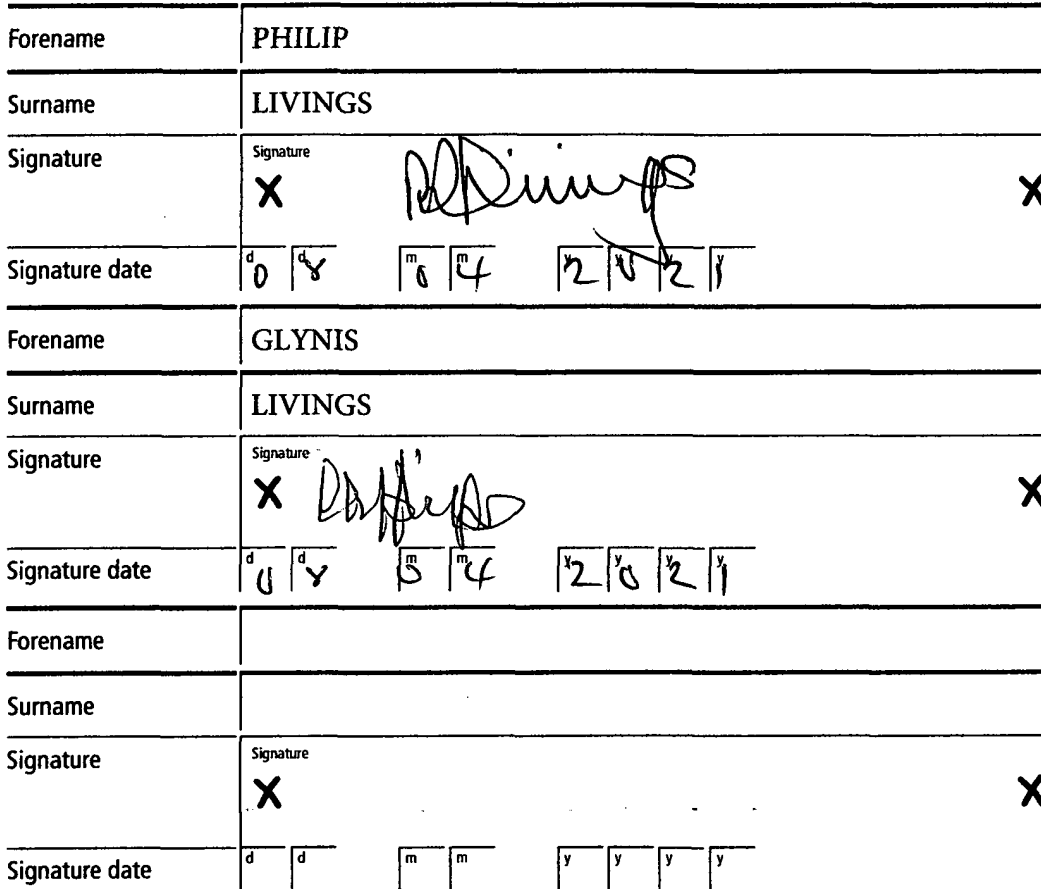 Forename PHILIP
Surname LIVINGS
Signature Signature
X X
Signature date d 0 d 8 m 0 m 4 y 2 y 0 y 2 y 1
Forename GLYNIS
Surname LIVINGS
Signature Signature
X X
Signature date d 0 d 8 m 0 m 4 y 2 y 0 y 2 y 1
Forename
Surname
Signature Signature
X X
Signature date d d m m y y y y